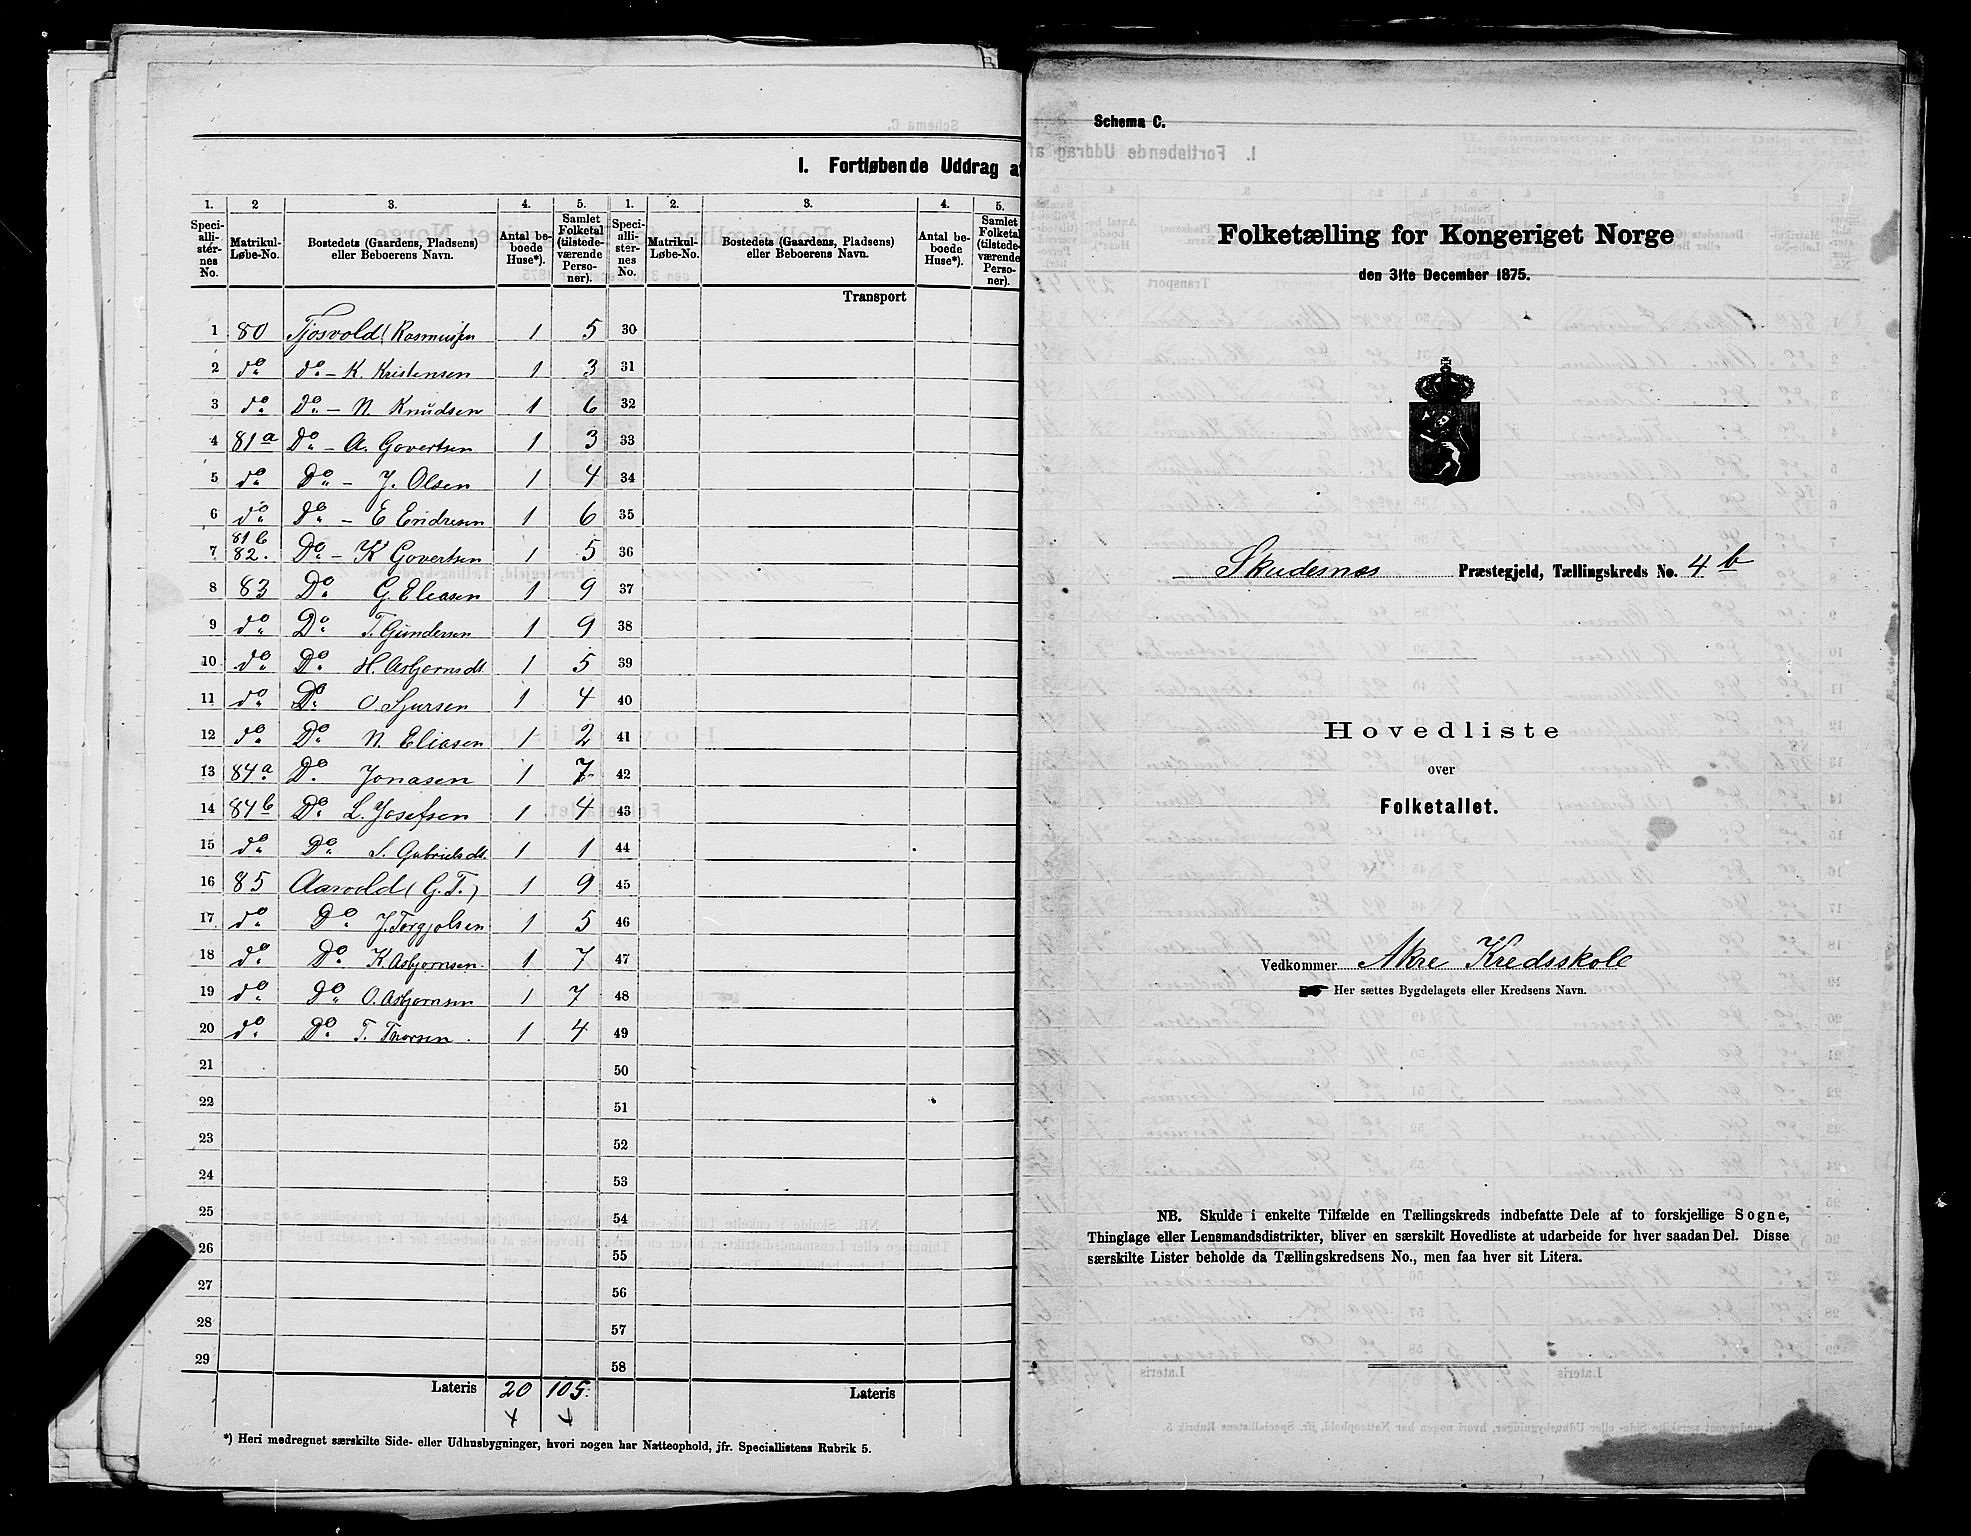 I. Fortløbende Uddrag af
1. 2 3. 4. 5. 1. 2. 3. 4. 5.
Speciallistérnes No. Matrikul-Løbe-No. Bostedets (Gaardens, Pladsens) eller Beboerens Navn. Antal beboede Huse*). Samlet Folketal (tilstedeværende Personer). Speciallisternes No. Matrikul-Løbe-No. Bostedets (Gaardens, Pladsens) eller Beboerens Navn. Antal beboede Huse*). Samlet Folketal (tilstedeværende Personer).
Transport
1 80 Tjosvold (Rasmussen 1 5 30
2 do do - K. Kristensen 1 3 31
3 do Do - N. Knudsen 1 6 32
4 81a Do - A. Govertsen 1 3 33
5 do Do - J. Olsen 1 4 34
6 do Do - E Endresen 1 6 35
7 81b 82. Do - K Govertsen 1 5 36
8 83 Do G. Eliasen 1 9 37
9 do Do T. Gundersen 1 9 38
10 do Do H. Asbjørnsdt 1 5 39
11 do Do O. Sjursen 1 4 40
12 do Do N. Eliasen 1 2 41
13 84a Do Jonasen 1 7 42
14 84b Do L. Josefsen 1 4 43
15 do Do S. Gabrielsdt. 1 1 44
16 85 Aarvold (G. T.) 1 9 45
17 do Do J. Torgjolsen 1 5 46
18 do Do K. Asbjørnsen. 1 7 47
19 do Do O. Asbjørnsen 1 7 48
20 do Do T. Thorsen. 1 4 49
21 50
22 51
23 52
24 53
25 54
26 55
27 56
28 57
29 58
Lateris 20 105. Lateris
*) Heri medregnet særskilte Side- eller Udhusbygninger, hvori nogen har Natteophold, jfr. Speciallistens Rubrik 5.
Schema C.
Folketælling for Kongeriget Norge
den 31te December 1875.
Skudesnæs Præstegjeld, Tællingskreds No. 4 b
Hovedliste
over
Folketallet.
Vedkommer Akre Kredsskole
Her sættes Bygdelagets eller Kredsens Navn.
NB. Skulde i enkelte Tilfælde en Tællingskreds indbefatte Dele af to forskjellige Sogne,
Thinglage eller Lensmandsdistrikter, bliver en særskilt Hovedliste at udarbeide for hver saadan Del. Disse
særskilte Lister beholde da Tællingskredsens No., men faa hver sit Litera.